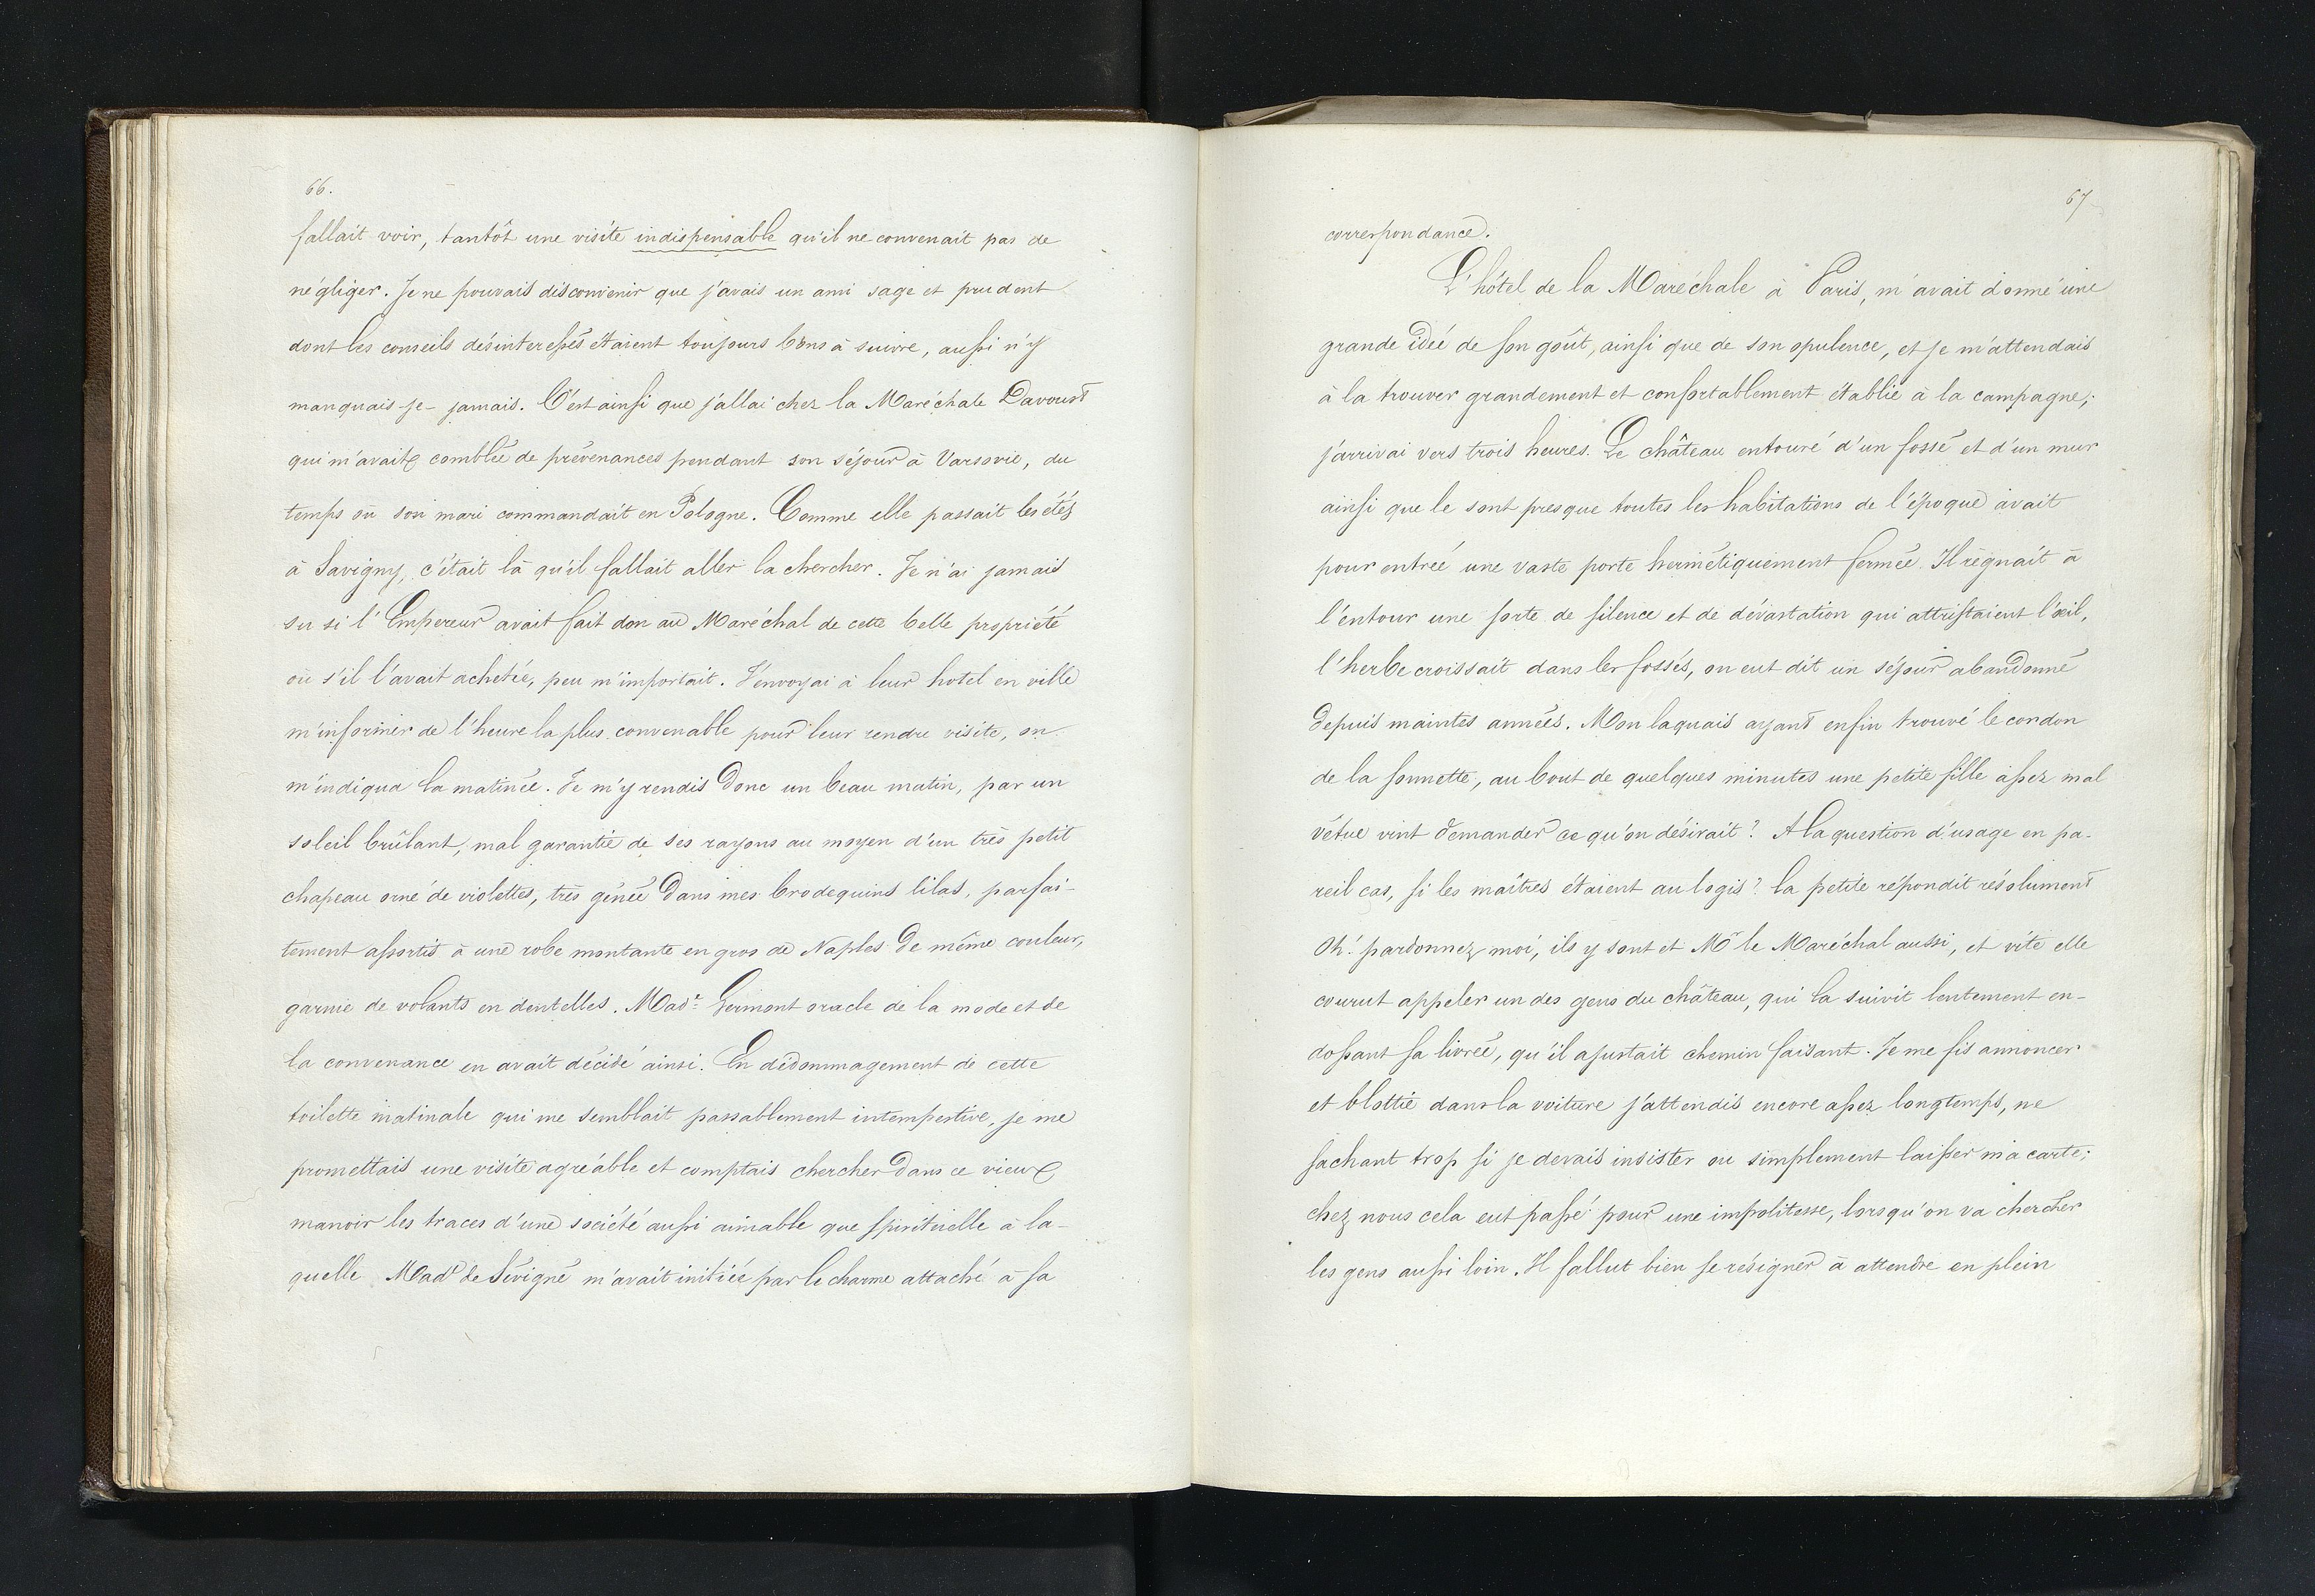 66.
fallait voir, tantôt une visite indispensable qu'il ne convenait pas de
négliger. Je ne pouvais disconvenir que j'avais un ami sage et prudent
dont les conseils désinteressés étaient toujours bons à suivre, aussi n'y
manquais-je- jamais. C'est ainsi que j'allai chez la Maréchale Davoust
qui m'avait comblée de prévenances pendant son séjour à Varsovie, du
temps où son mari commandait en Pologne. Comme elle passait les étés
à Savigny, c'était là qu'il fallait aller la chercher. Je n'ai jamais
su si l'Empereur avait fait don au Maréchal de cette belle propriété
où s'il l'avait achetée, peu m'importait. J'envoyai à leur hotel en ville
m'informer de l'heure la plus convenable pour leur rendre visite, on
m'indiqua la matinée. Je m'y rendis donc un beau matin, par un
soleil brûlant, mal garantie de ses rayons au moyen d'un très petit
chapeau orné de violettes, très gênée dans mes brodequins lilas, parfai-
tement assortis à une robe montante en gros de Naples de même couleur,
garnie de volants en dentelles. Madᵉ Germont oracle de la mode et de
la convenance en avait décidé ainsi. En dédommagement de cette
toilette matinale qui me semblait passablement intempestive, je me
promettais une visite agréable et comptais chercher dans ce vieux
manoir les traces d'une société aussi aimable que spirituelle à la-
quelle Madᵉ de Sévigné m'avait initiée par le charme attaché à sa
67
correspondance.
L'hôtel de la Maréchale à Paris, m'avait donné une
grande idée de son goût, ainsi que de son opulence, et je m'attendais
à la trouver grandement et confortablement établie à la campagne;
j'arrivai vers trois heures. Le château entouré d'un fossé et d'un mur
ainsi que le sont presque toutes les habitations de l'époque avait
pour entrée une vaste porte hermétiquement fermée. Il règnait à
l'entour une sorte de silence et de dévastation qui attristaient l'œil,
l'herbe croissait dans les fossés, on eut dit un séjour abandonné
depuis maintes années. Mon laquais ayant enfin trouvé le cordon
de la sonnette, au bout de quelques minutes une petite fille assez mal
vêtue vint demander ce qu'on désirait? A la question d'usage en pa-
reil cas, si les maîtres étaient au logis? la petite répondit résolument
Oh! pardonnez moi, ils y sont et Mʳ le Maréchal aussi, et vite elle
courut appeler un des gens du château, qui la suivit lentement en-
dossant sa livrée, qu'il ajustait chemin faisant. Je me fis annoncer
et blottie dans la voiture j'attendis encore assez longtemps, ne
sachant trop si je devais insister ou simplement laisser ma carte;
chez nous cela eut passé pour une impolitesse, lorsqu'on va chercher
les gens aussi loin. Il fallut bien se résigner à attendre en plein